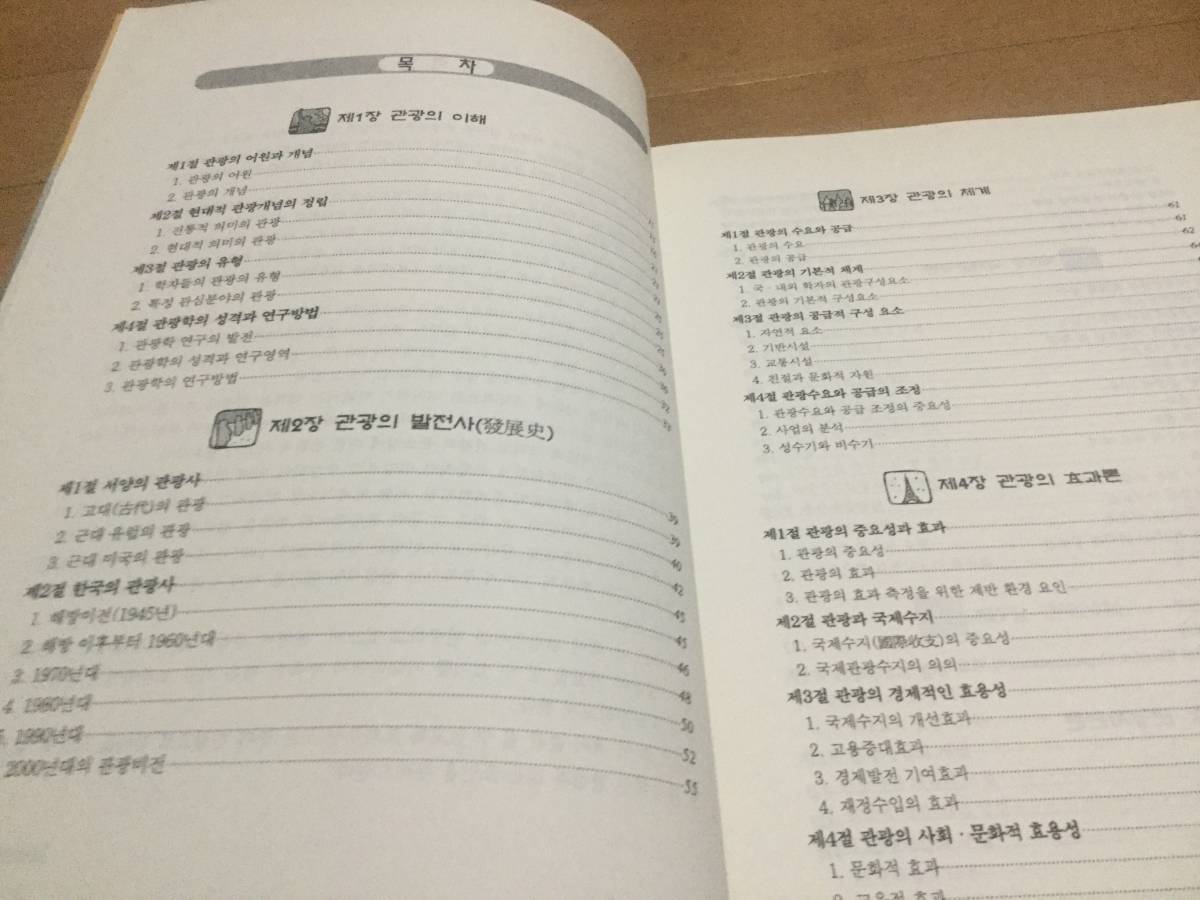 목 차
제1장 관광의 이해
제1절 관광의 어원과 개념
1. 관광의 어원
2. 관광의 개념
제2절 현대적 관광개념의 정립
1. 전통적 의미의 관광
2. 현대적 의미의 관광
제3절 관광의 유형
1. 학자들의 관광의 유형
2. 특정 관심분야의 관광
제4절 관광학의 성격과 연구방법
1. 관광학 연구의 발전
2. 관광학의 성격과 연구영역
3. 관광학의 연구방법
제2장 관광의 발전사(發展史)
제1절 서양의 관광사 39
1. 고대(古代)의 관광 39
2. 근대 유럽의 관광 40
3. 근대 미국의 관광 42
제2절 한국의 관광사 45
1. 해방이전(1945년) 45
2. 해방 이후부터 1960년대 46
3. 1970년대 48
4. 1980년대 50
1990년대 52
2000년대의 관광비전 55
제3장 관광의 체계
제1절 관광의 수요와 공급 61
1. 관광의 수요 61
2. 관광의 공급 62
제2절 관광의 기본적 체계
1. 국·내외 학자의 관광구성요소
2. 관광의 기본적 구성요소
제3절 관광의 공급적 구성 요소
1. 자연적 요소
2. 기반시설
3. 교통시설
4. 친절과 문화적 자원
제4절 관광수요와 공급의 조정
1. 관광수요와 공급 조정의 중요성
2. 사업의 분석
3. 성수기와 비수기
제4장 관광의 효과론
제1절 관광의 중요성과 효과
1. 관광의 중요성
2. 관광의 효과
3. 관광의 효과 측정을 위한 제반 환경 요인
제2절 관광과 국제수지
1. 국제수지(國際收支)의 중요성
2. 국제관광수지의 의의
제3절 관광의 경제적인 효용성
1. 국제수지의 개선효과
2. 고용증대효과
3. 경제발전 기여효과
4. 재정수입의 효과
제4절 관광의 사회·문화적 효용성
1. 문화적 효과